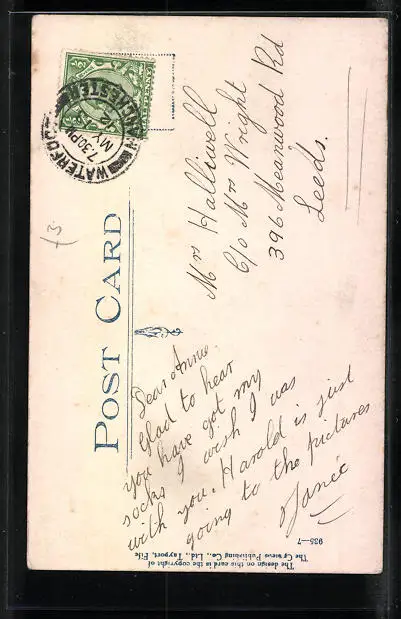 POST CARD
Dear Annie.
Glad to hear
you have got my
socks I wish I was
with you. Harold is just
going to the pictures
Janie
Mrs Halliwell
C/o Mrs Wright
396 Meanwood Rd
Leeds.
WATERFOOT
MANCHESTER
7.30 PM
MY
(3.
The design on this card is the copyright of
Publishing Co., Ltd., Tayport, Fife
935—7